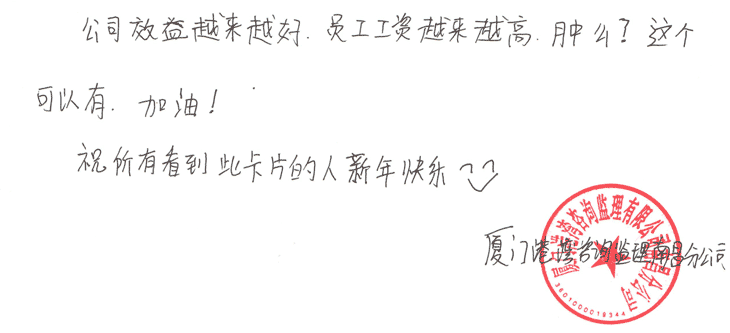 公司效益越来越好.员工工资越来越高.肿么?这个
可以有.加油!
祝所有看到此卡片的人新年快乐
厦门港湾咨询监理南昌分公司
厦门港湾咨询监理有限公司南昌分公司
3601000019344